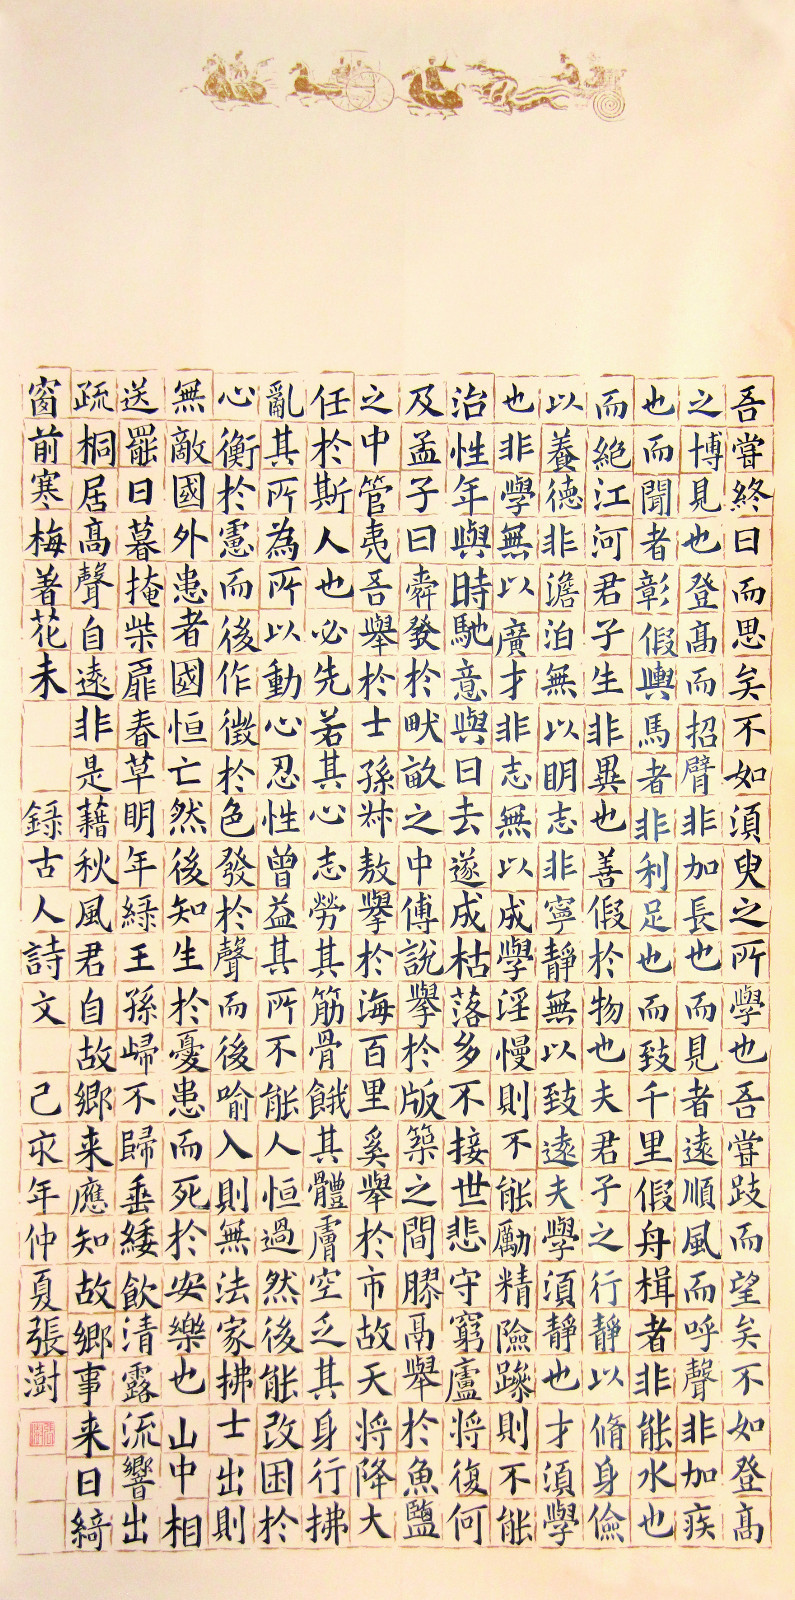 吾嘗終日而思矣不如須臾之所學也吾嘗跂而望矣不如登高
之博見也登高而招臂非加長也而見者遠順風而呼聲非加疾
也而聞者彰假輿馬者非利足也而致千里假舟楫者非能水也
而絕江河君子生非異也善假於物也夫君子之行靜以脩身儉
以養德非澹泊無以明志非寧靜無以致遠夫學須靜也才須學
也非學無以廣才非志無以成學淫慢則不能勵精險躁則不能
治性年與時馳意與日去遂成枯落多不接世悲守窮廬將復何
及孟子曰舜發於畎畝之中傅說舉於版築之間膠鬲舉於魚鹽
之中管夷吾舉於士孫叔敖舉於海百里奚舉於市故天將降大
任於斯人也必先若其心志勞其筋骨餓其體膚空乏其身行拂
亂其所為所以動心忍性曾益其所不能人恒過然後能改困於
心衡於慮而後作徵於色發於聲而後喻入則無法家拂士出則
無敵國外患者國恒亡然後知生於憂患而死於安樂也山中相
送罷日暮掩柴扉春草明年綠王孫歸不歸垂緌飲清露流響出
疏桐居高聲自遠非是藉秋風君自故鄉来應知故鄉事来日綺
窗前寒梅著花未 錄古人詩文 己亥年仲夏張澍